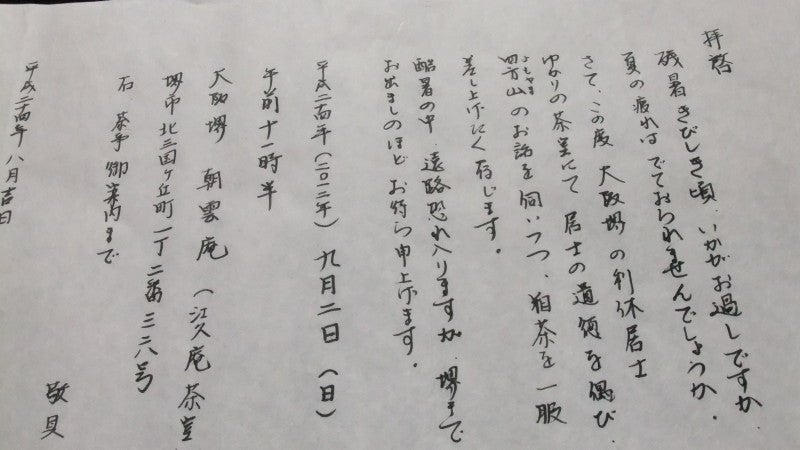 拝啓
残暑きびしき頃、いかがお過しですか
夏の疲れはでておられませんでしょうか。
さて、この度 大阪堺の利休居士
ゆかりの茶室にて 居士の道徳を偲び、
四方山のお話を伺いつつ、粗茶を一服
よもやま
差し上げたく存じます。
酷暑の中 遠路恐れ入りますが、堺まで
お出ましのほど お待ち申上げます。
平成二十四年(二〇一二年) 九月二日(日)
午前十一時半
大阪堺 朝雲庵(江久庵茶室
堺市北三国ヶ丘町一丁二番三二八号
右 茶事御案内まで
敬具
平成二十四年 八月吉日